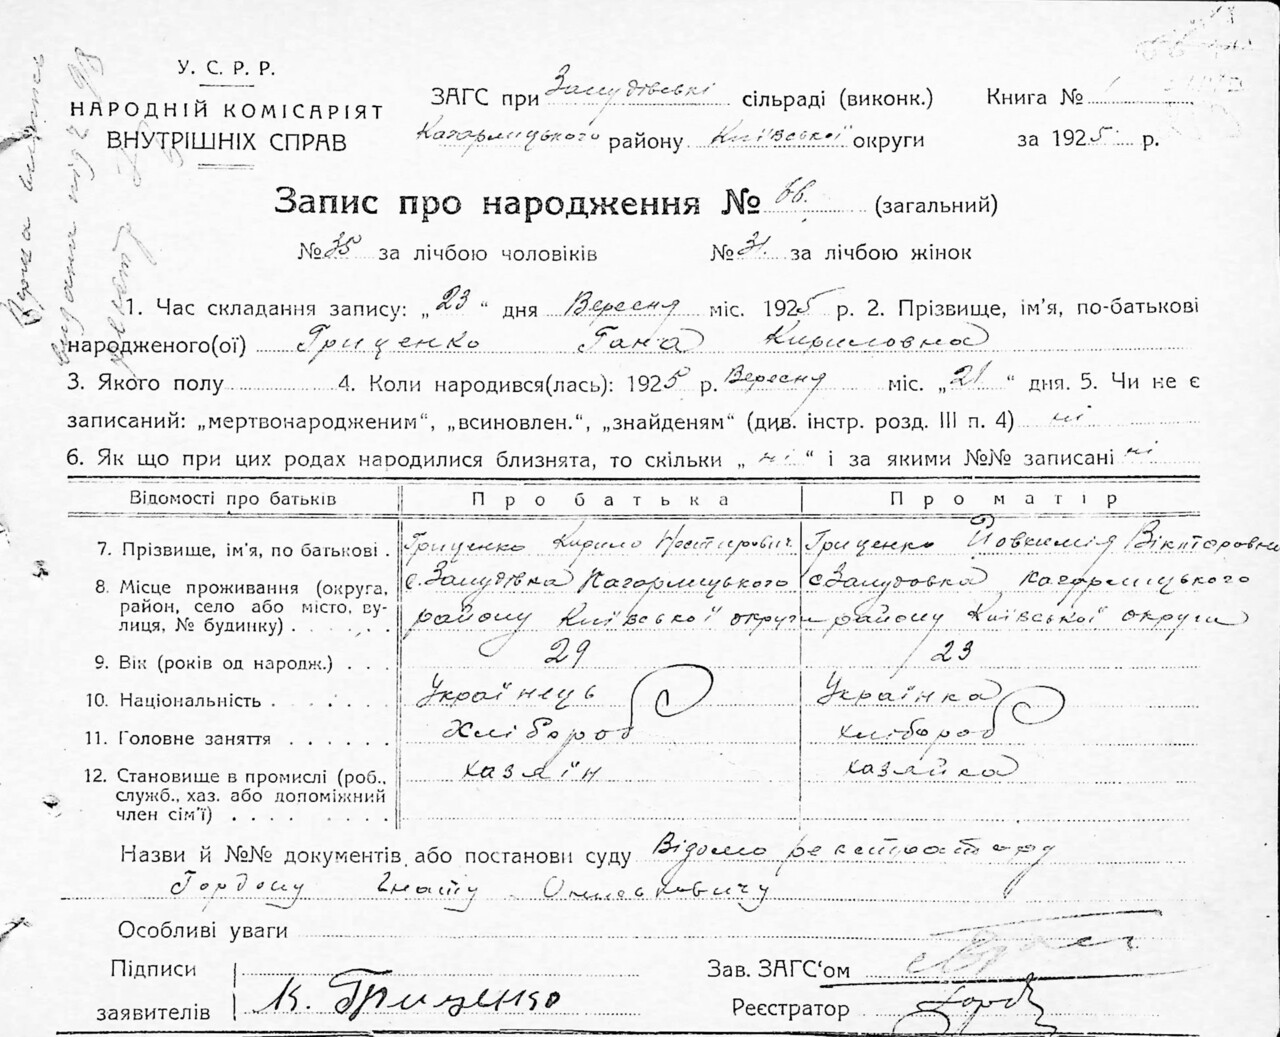 У. С. Р. Р.
НАРОДНІЙ КОМІСАРІЯТ
ВНУТРІШНІХ СПРАВ
ЗАГС при Залудівські сільраді (виконк.) Книга № 1
Кагарлицького району Київської округи за 1925 р.
Запис про народження № 66. (загальний)
№ 35 за лічбою чоловіків № 31. за лічбою жінок
1. Час складання запису: „23“ дня Вересня міс. 1925 р. 2. Прізвище, ім'я, по-батькові
народженого(ої) Гриценко Ганна Кириловна
3. Якого полу 4. Коли народився(лась): 1925 р. Вересня міс. „21“ дня. 5. Чи не є
записаний: „мертвонародженим“, „всиновлен.“, „знайденям“ (див. інстр. розд. III п. 4) ні
6. Як що при цих родах народилися близнята, то скільки „ні“ і за якими №№ записані ні
Відомості про батьків Про батька Про матір
7. Прізвище, ім'я, по батькові . Гриценко Кирило Несторович Гриценко Йовхимія Вікторовна
8. Місце проживання (округа, район, село або місто, вулиця, № будинку) с. Залудівка Кагарлицького району Київської округи с. Залудовка Кагарлицького району Київської округи
9. Вік (років од народж.) . . . 29 23
10. Національність . . . . . Українець Українка
11. Головне заняття . . . . . . Хлібороб Хлібороб
12. Становище в промислі (роб., служб., хаз. або допоміжний член сім'ї) . . . . . хазяїн хазяйка
Назви й №№ документів або постанови суду Відомо реєстратору
Гордону Гнату
Особливі уваги
Підписи Зав. ЗАГС'ом
заявителів К. Гриценко Реєстратор